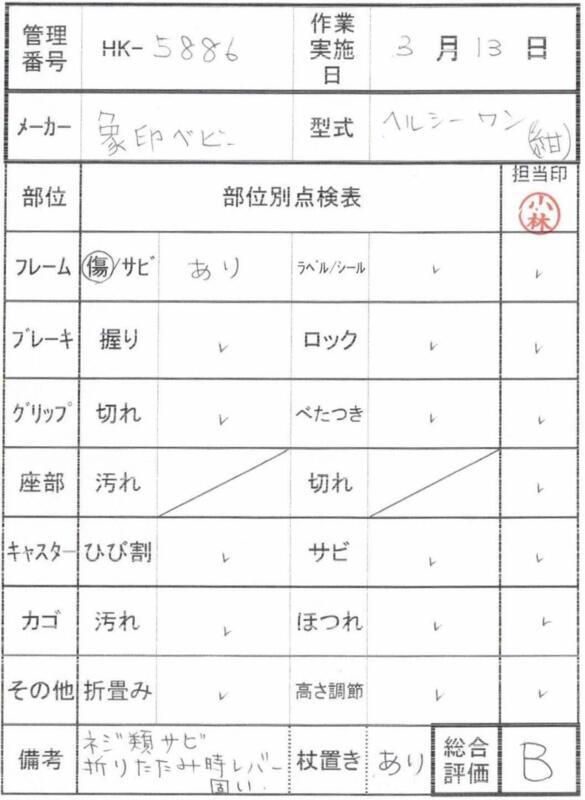 管理番号 HK-5886 作業実施日 3月13日
メーカー 象印ベビー 型式 ヘルシーワン(紺)
部位 部位別点検表 担当印 小林
フレーム 傷/サビ あり ラベル/シール ✓ ✓
ブレーキ 握り ✓ ロック ✓ ✓
グリップ 切れ ✓ べたつき ✓ ✓
座部 汚れ 切れ ✓
キャスター ひび割 ✓ サビ ✓ ✓
カゴ 汚れ ✓ ほつれ ✓ ✓
その他 折畳み ✓ 高さ調節 ✓ ✓
備考 ネジ類サビ 杖置き あり 総合評価 B
折りたたみ時レバー
固い